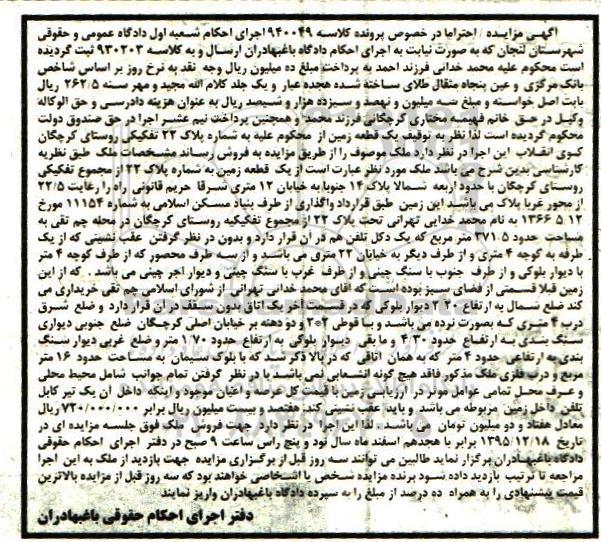 آگهی مزایده / احتراما در خصوص پرونده کلاسه ۹۴۰۰۴۹ اجرای احکام شعبه اول دادگاه عمومی و حقوقی
شهرستان لنجان که به صورت نیابت به اجرای احکام دادگاه باغبهادران ارسال و به کلاسه ۹۳۰۲۰۳ ثبت گردیده
است محکوم علیه محمد خدائی فرزند احمد به پرداخت مبلغ ده میلیون ریال وجه نقد به نرخ روز بر اساس شاخص
بانک مرکزی و عین پنجاه مثقال طلای ساخته شده هجده عیار و یک جلد کلام الله مجید و مهر سنه ۲۶۲/۵ ریال
بابت اصل خواسته و مبلغ سه میلیون و نهصد و سیزده هزار و شیصد ریال به عنوان هزینه دادرسی و حق الوکاله
وکیل در حق خانم فهیمه مختاری کرچگانی فرزند محمد و همچنین پرداخت نیم عشر اجرا در حق صندوق دولت
محکوم گردیده است لذا نظر به توقیف یک قطعه زمین از محکوم علیه به شماره پلاک ۲۲ تفکیکی روستای کرچگان
کوی انقلاب این اجرا در نظر دارد ملک موصوف را از طریق مزایده به فروش رساند مشخصات ملک طبق نظریه
کارشناسی بدین شرح می باشد ملک مورد نظر عبارت است از یک قطعه زمین به شماره پلاک ۲۲ از مجموع تفکیکی
روستای کرچگان با حدود اربعه شمالا پلاک ۱۴ جنوبا به خیابان ۱۲ متری شرقا حریم قانونی راه را رعایت ۲۲/۵
از محور غربا پلاک می باشد این زمین طبق قرارداد واگذاری از طرف بنیاد مسکن اسلامی به شماره ۱۱۱۵۴ مورخ
۱۳۶۶ ۵ ۱۲ به نام محمد خدایی تهرانی تحت پلاک ۲۲ از مجموع تفکیکیه روستای کرچگان در محله چم تقی به
مساحت حدود ۲۷۱.۵ متر مربع که یک دکل تلفن هم در آن قرار دارد و بدون در نظر گرفتن عقب نشینی که از یک
طرفه به کوچه ۴ متری و از طرف دیگر به خیابان ۲۲ متری می باشد و از سه طرف محصور که از طرف کوچه ۴ متر
با دیوار بلوکی و از طرف جنوب با سنگ چینی و از طرف غرب با سنگ چینی و دیوار اجر چینی می باشد . که از این
زمین قبلا قسمتی از فضای سبز بوده است که آقای محمد خدائی تهرانی از شورای اسلامی چم تقی خریداری می
کند ضلع شمال به ارتفاع ۲،۲۰ دیوار بلوکی که در قسمت آخر یک اتاق بدون سقف در آن قرار دارد و ضلع شرق
درب ۴ متری که بصورت نرده می باشد و با قوطی ۲*۲ و دو دهنه بر خیابان اصلی کرچگان ضلع جنوبی دیواری
سنگ بندی به ارتفاع حدود ۴،۳۰ و ما بقی دیوار بلوکی به ارتفاع حدود ۱،۷۰ متر و ضلع غربی دیوار سنگ
بندی به ارتفاعی حدود ۴ متر که به همان اتاقی که در بالا ذکر شد که با بلوک سیمان به مساحت حدود ۱۶ متر
مربع و درب فلزی ملک مذکور فاقد هیچ گونه انشعابی نمی باشد با در نظر گرفتن تمام جوانب شامل محیط محلی
و عرف محل تمامی عوامل موثر در ارزیابی زمین با قیمت کل عرصه و اعیان موجود و اینکه داخل آن یک تیر کابل
تلفن داخل زمین مزبوطه می باشد و باید عقب نشینی کند هفتصد و بیست میلیون ریال برابر ۷۲۰/۰۰۰/۰۰۰ ریال
معادل هفتاد و دو میلیون تومان می باشد . لذا این اجرا در نظر دارد جهت فروش ملک فوق جلسه مزایده ای در
تاریخ ۱۳۹۵/۱۲/۱۸ برابر با هجدهم اسفند ماه سال نود و پنج راس ساعت ۹ صبح در دفتر اجرای احکام حقوقی
دادگاه باغبهادران برگزار نماید طالبین می توانند سه روز قبل از برگزاری مزایده جهت بازدید از ملک به این اجرا
مراجعه تا ترتیب بازدید داده شود برنده مزایده شخص یا اشخاصی خواهند بود که سه روز قبل از مزایده بالاترین
قیمت پیشنهادی را به همراه ده درصد از مبلغ را به سپرده دادگاه باغبهادران واریز نمایند
دفتر اجرای احکام حقوقی باغبهادران